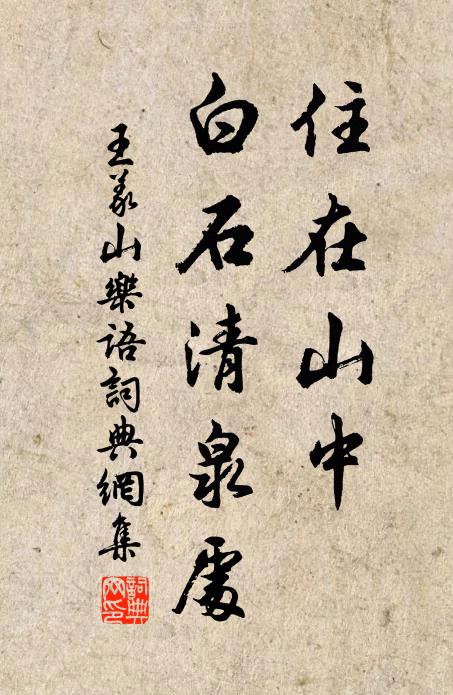 住在山中
白石清泉處
王義山樂語詞典網集
詞典網印